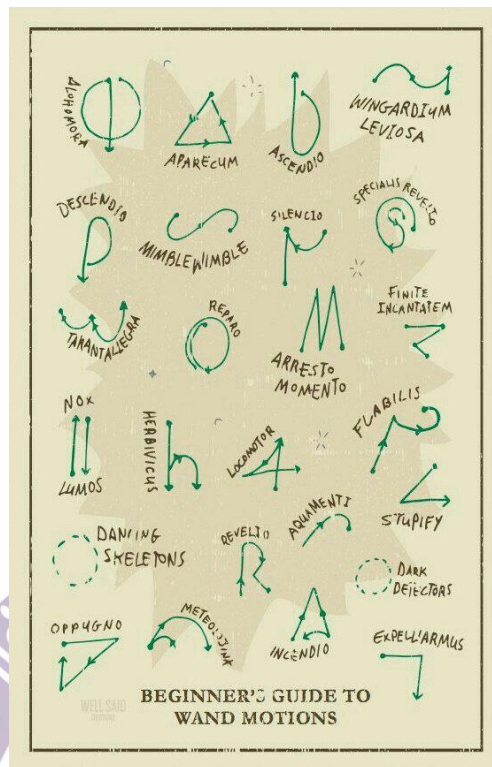 ALOHOMORA
APARECUM
ASCENDIO
WINGARDIUM
LEVIOSA
DESCENDIO
MIMBLEWIMBLE
SILENCIO
SPECIALIS REVELIO
TARANTALLEGRA
REPARO
ARRESTO
MOMENTO
FINITE
INCANTATEM
NOX
LUMOS
HERBIVICUS
LOCOMOTOR
FLABILIS
STUPIFY
DANCING
SKELETONS
REVELIO
AQUAMENTI
DARK
DETECTORS
OPPUGNO
METEOLOJINX
INCENDIO
EXPELL'ARMUS
WELL SAID
BEGINNER'S GUIDE TO
WAND MOTIONS